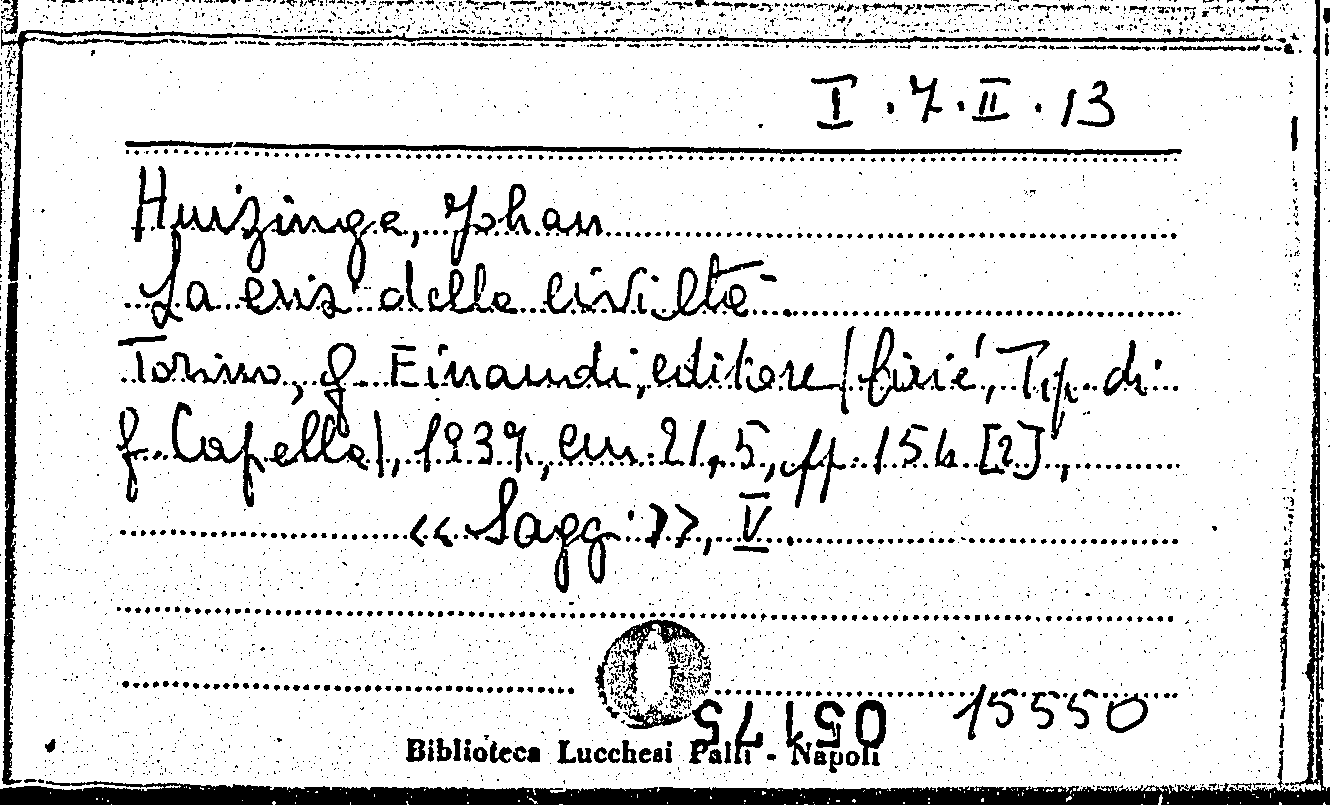 I.7.II.13
Huizinga, Johan
La crisi della civiltà
Torino, G. Einaudi, editore (Ciriè, Tip. di
G. Capella), 1937, cm. 21,5, pp. 156 [2],
«Saggi», V.
15550
Biblioteca Lucchesi Palli - Napoli